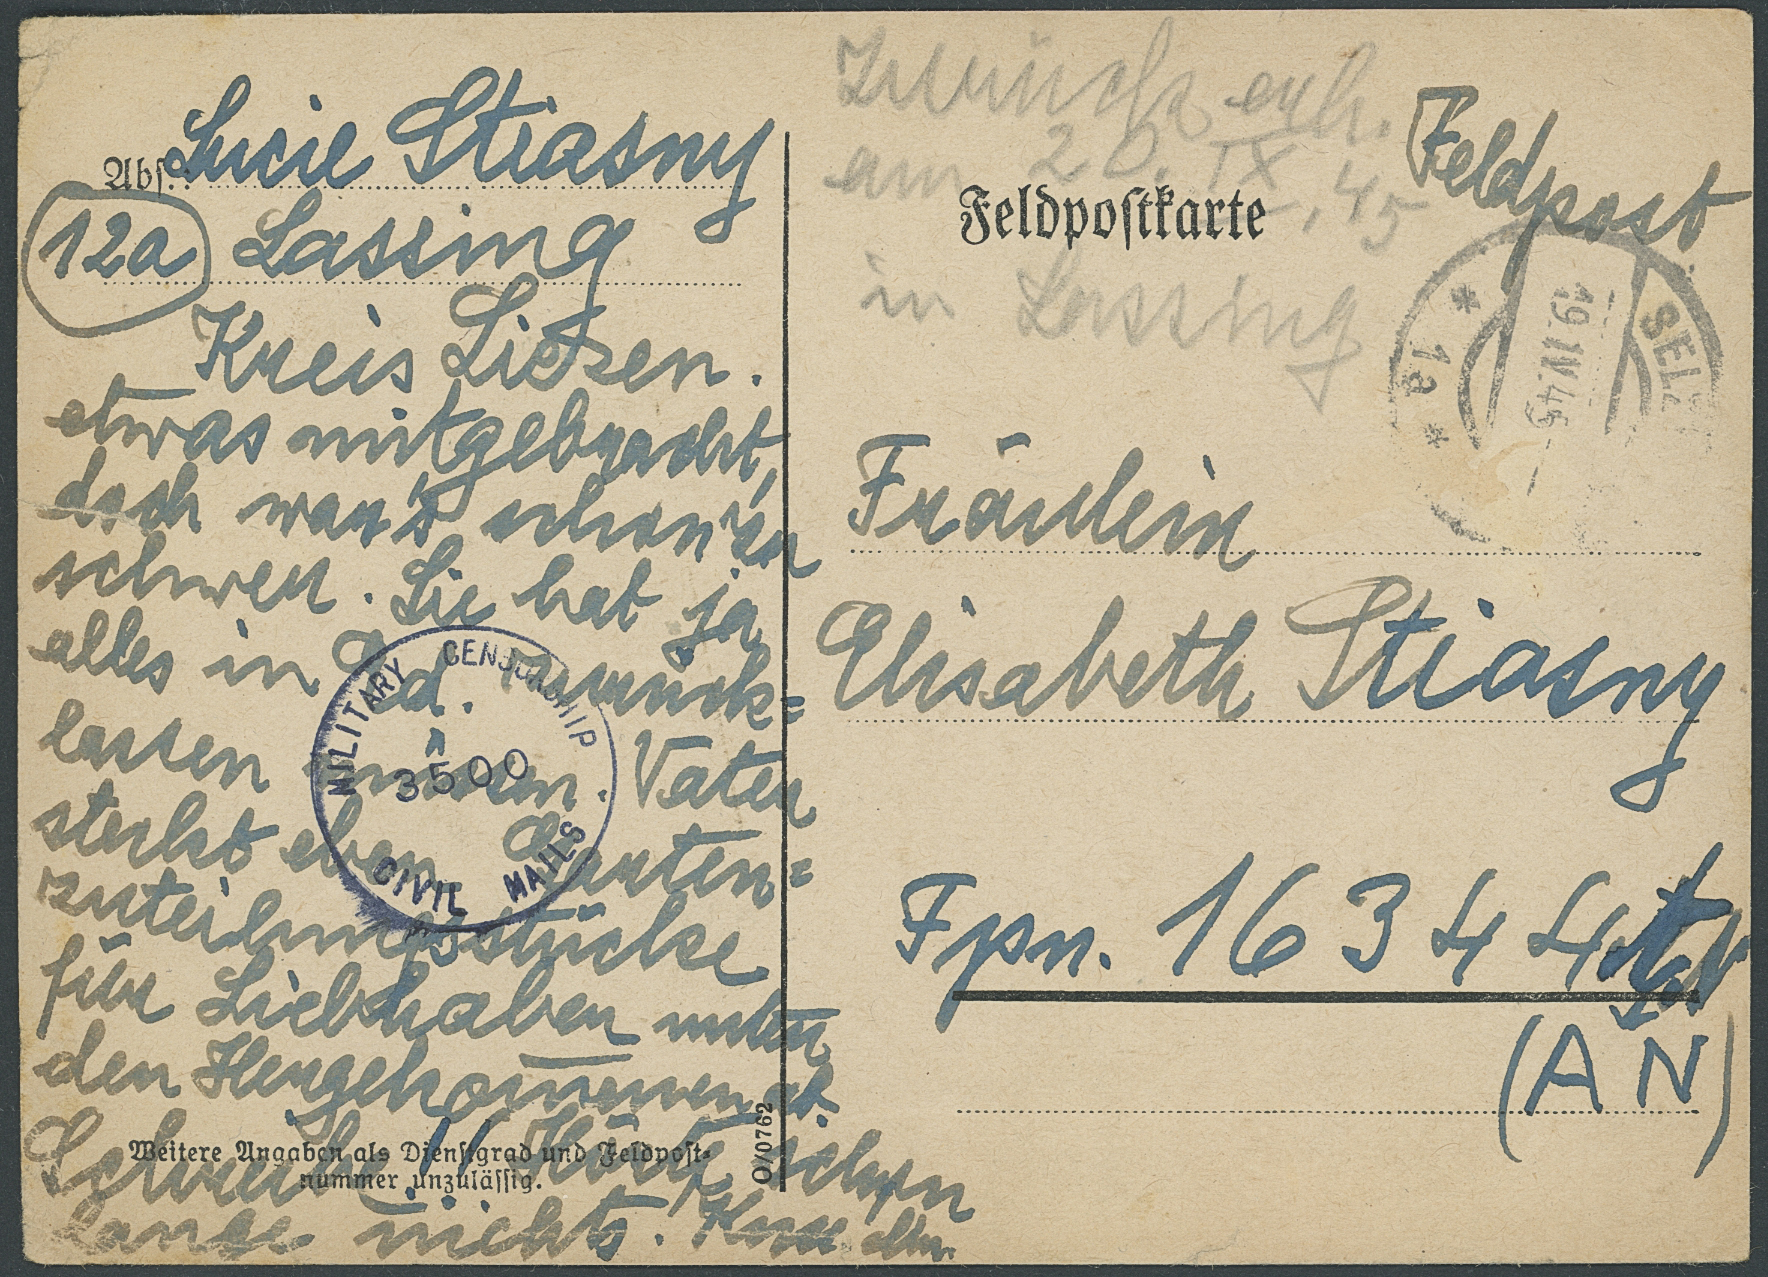 Abs.: Lucie Stiasny
12a Lassing
Kreis Liezen.
etwas mitgebracht,
doch war's schon zu
schwer. Sie hat ja
alles in Gd. zurück=
lassen müssen. Vater
steckt eben Garten=
zuteilungsstücke
für Liebhaber unter
den Hergekommenen ab.
Schreibe!! Hörte schon
lange nichts.
Weitere Angaben als Dienstgrad und Feldpost-
nummer unzulässig.
O/0762
MILITARY CENSORSHIP
3500
CIVIL MAILS
Zurück erh.
am 20. IX. 45
in Lassing
Feldpost
Feldpostkarte
SELZ
19.IV.45
* 1a *
Fräulein
Elisabeth Stiasny
Fpn. 16344
(AN)